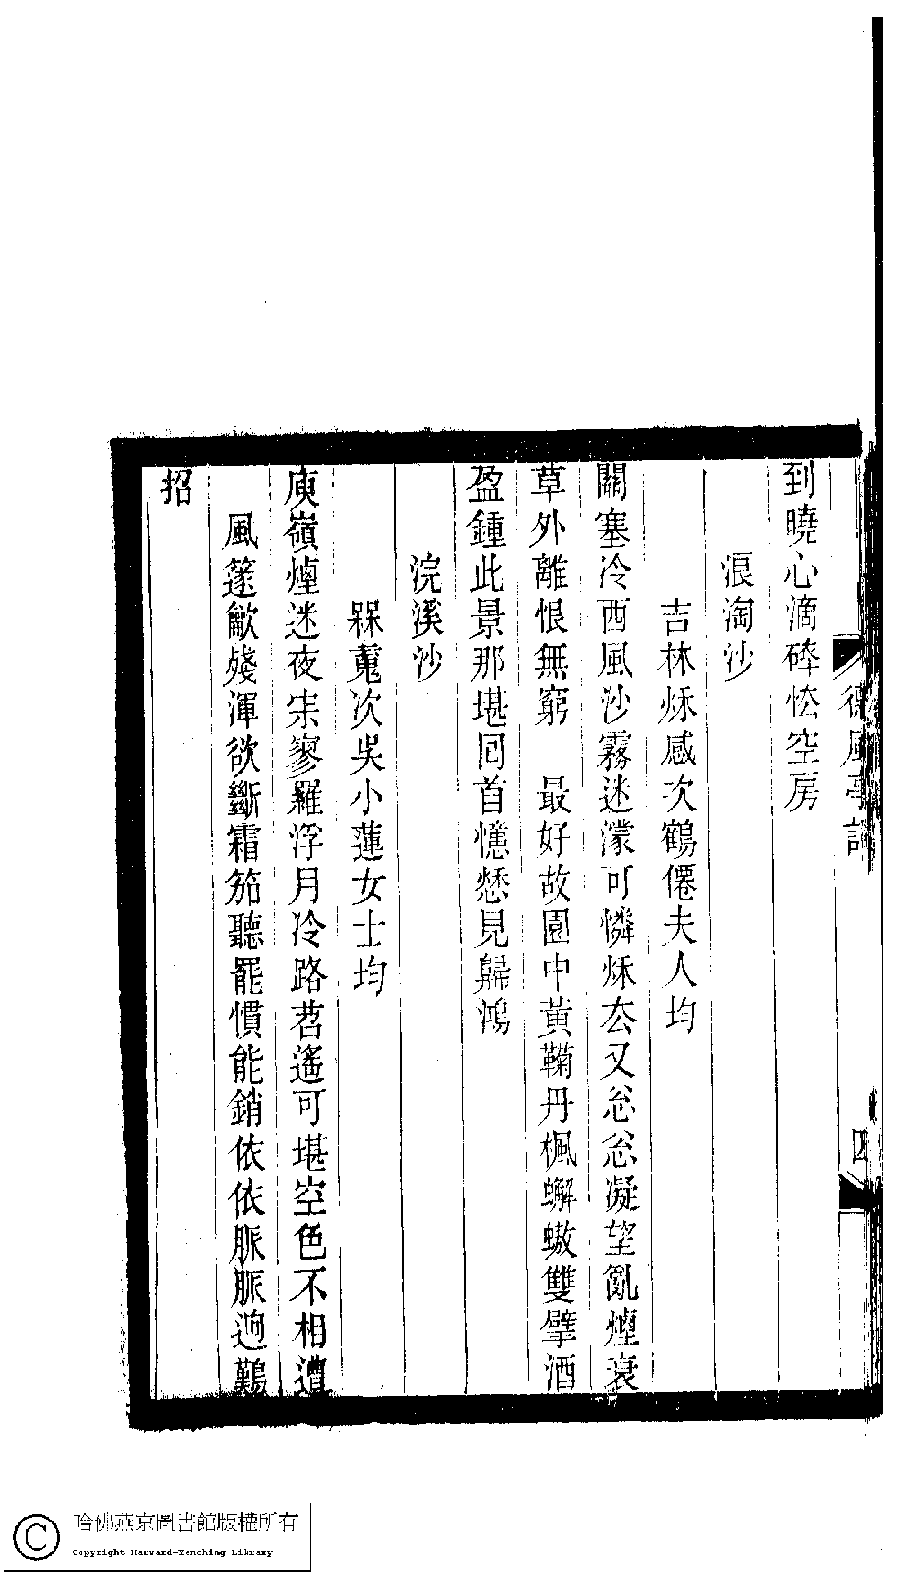 到曉心滴碎恠空房
浪淘沙
吉林烁感次鶴僊夫人均
關塞冷西風沙霧迷濛可憐烁厺又忩忩凝望亂煙衰
草外離恨無窮　最好故園中黃鞠丹楓蠏螯雙擘酒
盈鍾此景那堪回首憶愁見歸鴻
浣溪沙
槑䰟次吳小蓮女士均
庾嶺煙迷夜宋寥羅浮月冷路苕遙可堪空色不相遭
　風篴歗殘渾欲斷霜笳聽罷慣能銷依依脈脈逈難
招
德風亭詞
四
哈佛燕京圖書館版權所有
Copyright Harvard-Yenching Library